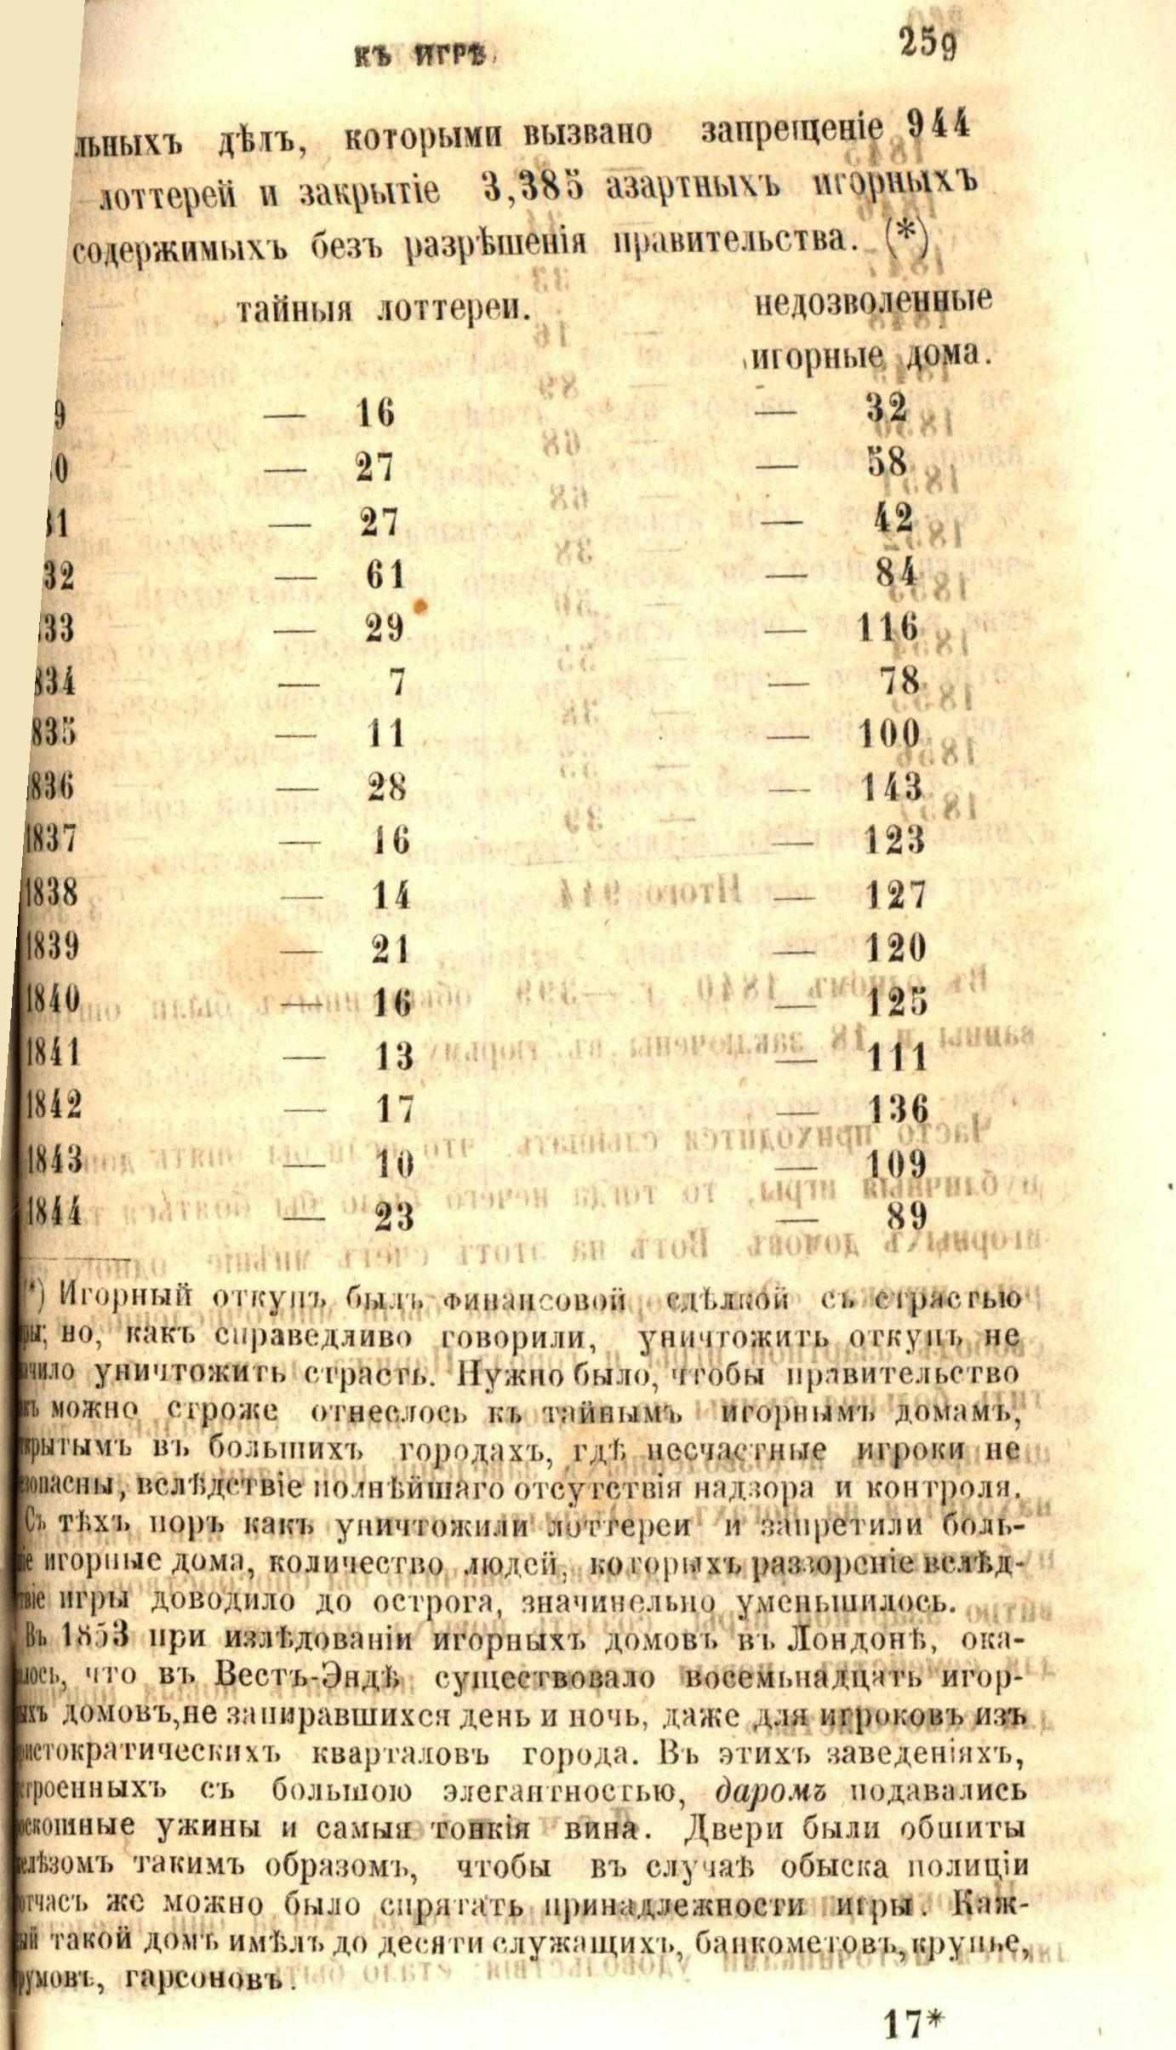 КЪ ИГРѢ. 259
льныхъ дѣлъ, которыми вызвано запрещеніе 944
лоттерей и закрытіе 3,385 азартныхъ игорныхъ
содержимыхъ безъ разрѣшенія правительства. (*)
тайныя лоттереи. недозволенные
игорные дома.
9 — 16 — 32
0 — 27 — 58
31 — 27 — 42
32 — 61 — 84
833 — 29 — 116
834 — 7 — 78
835 — 11 — 100
1836 — 28 — 143
1837 — 16 — 123
1838 — 14 — 127
1839 — 21 — 120
1840 — 16 — 125
1841 — 13 — 111
1842 — 17 — 136
1843 — 10 — 109
1844 — 23 — 89
(*) Игорный откупъ былъ финансовой сдѣлкой съ страстью
но, какъ справедливо говорили, уничтожить откупъ не
уничтожить страсть. Нужно было, чтобы правительство
можно строже отнеслось къ тайнымъ игорнымъ домамъ,
крытымъ въ большихъ городахъ, гдѣ несчастные игроки не
опасны, вслѣдствіе полнѣйшаго отсутствія надзора и контроля.
Съ тѣхъ поръ какъ уничтожили лоттереи и запретили боль-
игорные дома, количество людей, которыхъ раззореніе вслѣд-
твіе игры доводило до острога, значинельно уменьшилось.
Въ 1853 при излѣдованіи игорныхъ домовъ въ Лондонѣ, ока-
лось, что въ Вестъ-Эндѣ существовало восемьнадцать игор-
ыхъ домовъ,не запиравшихся день и ночь, даже для игроковъ изъ
истократическихъ кварталовъ города. Въ этихъ заведеніяхъ,
троенныхъ съ большою элегантностью, даромъ подавались
скошные ужины и самыя тонкія вина. Двери были обшиты
елѣзомъ такимъ образомъ, чтобы въ случаѣ обыска полиціи
тчасъ же можно было спрятать принадлежности игры. Каж-
ый такой домъ имѣлъ до десяти служащихъ, банкометовъ, крупье,
румовъ, гарсоновъ.
17*